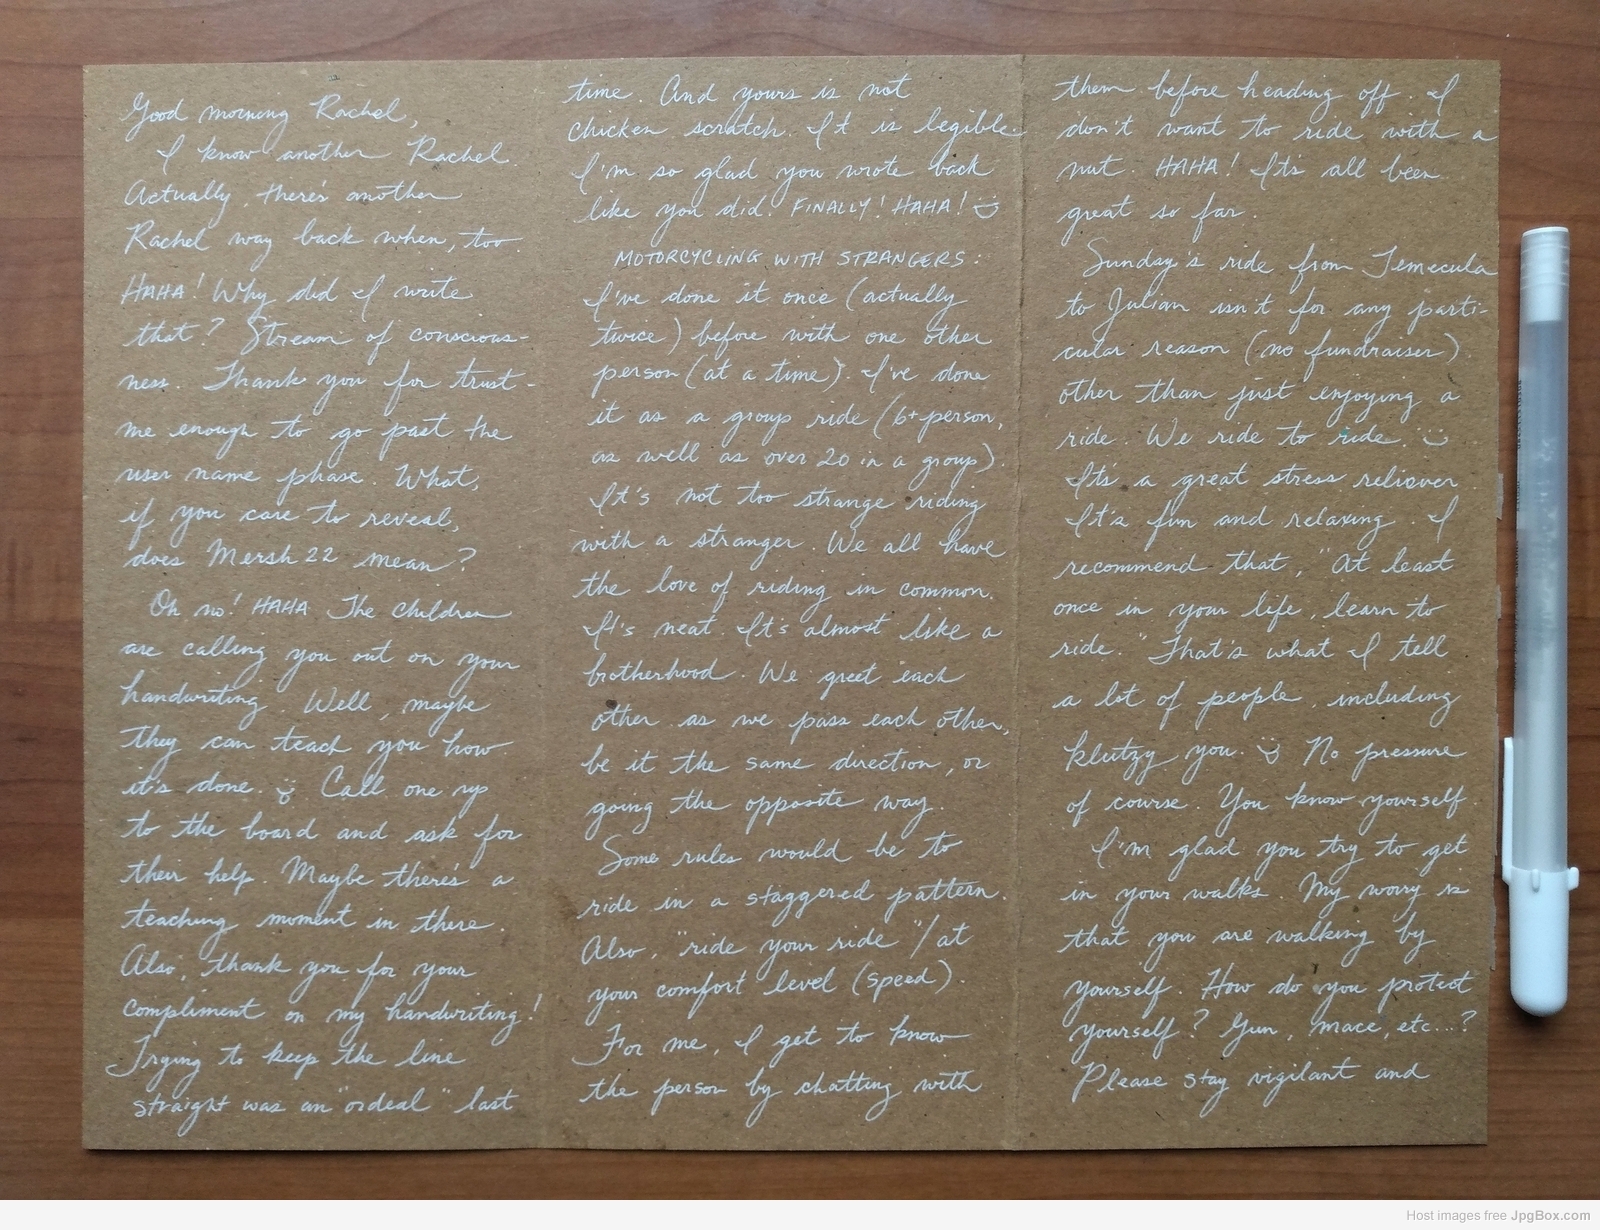 Good morning Rachel,
I know another Rachel.
Actually, there's another
Rachel way back when, too.
HAHA! Why did I write
that? Stream of conscious-
ness. Thank you for trust-
me enough to go past the
user name phase. What,
if you care to reveal,
does Mersh 22 mean?
Oh no! HAHA The children
are calling you out on your
handwriting. Well, maybe
they can teach you how
it's done. Call one up
to the board and ask for
their help. Maybe there's a
teaching moment in there.
Also, thank you for your
compliment on my handwriting!
Trying to keep the line
straight was an "ordeal" last
time. And yours is not
chicken scratch. It is legible.
I'm so glad you wrote back
like you did. FINALLY! HAHA!
MOTORCYCLING WITH STRANGERS:
I've done it once (actually
twice) before with one other
person (at a time). I've done
it as a group ride (6+ person,
as well as over 20 in a group).
It's not too strange riding
with a stranger. We all have
the love of riding in common.
It's neat. It's almost like a
brotherhood. We greet each
other as we pass each other,
be it the same direction, or
going the opposite way.
Some rules would be to
ride in a staggered pattern.
Also, "ride your ride"/at
your comfort level (speed).
For me, I get to know
the person by chatting with
them before heading off. I
don't want to ride with a
nut. HAHA! It's all been
great so far.
Sunday's ride from Temecula
to Julian isn't for any parti-
cular reason (no fundraiser).
other than just enjoying a
ride. We ride to ride.
It's a great stress reliever
It's fun and relaxing. I
recommend that, "At least
once in your life, learn to
ride." That's what I tell
a lot of people, including
klutzy you. No pressure
of course. You know yourself.
I'm glad you try to get
in your walks. My worry is
that you are walking by
yourself. How do you protect
yourself? Gun, mace, etc...?
Please stay vigilant and
Host images free JpgBox.com